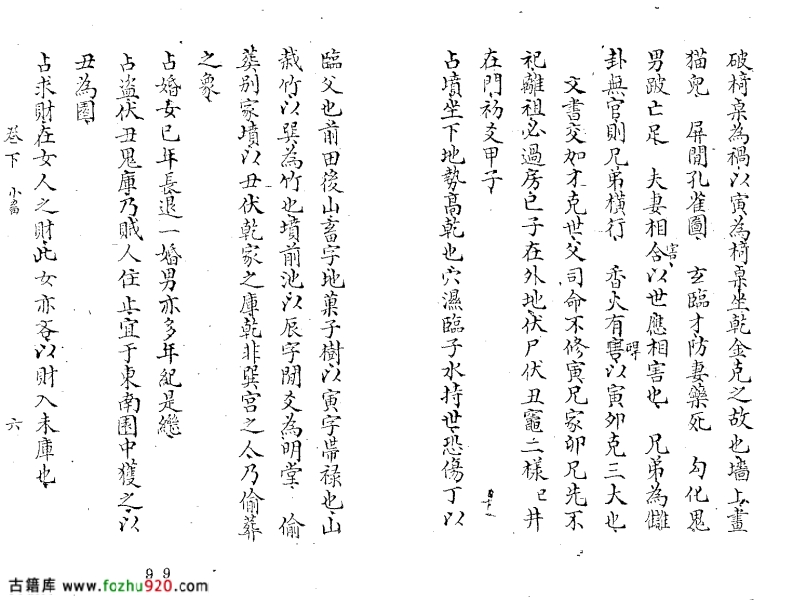 破椅桌為禍以寅為椅桌坐乾金克之故也墻上畫
猫兒 屏間孔雀圖 玄臨才防妻藥死 勾化鬼
男跛亡足 夫妻相合害以世應相害也 兄弟為讎
卦無官則兄弟橫行 香火有害以寅卯克三大也
文書交如才克世父司命不修寅兄家卯兄先不
祀離祖必過房巳子在外地伏尸伏丑竈二樣 巳井
在門初爻甲子
占墳坐下地勢高乾也穴濕臨子水持世恐傷丁以
臨父也前田後山畜字地菓子樹以寅字帶祿也山
栽竹以巽為竹也墳前池以辰字間爻為明堂 偷
葬別家墳以丑伏乾家之庫乾非巽宮之人乃偷葬
之象
占婚女已年長退一婚男亦多年紀是繼
占盜伏丑鬼庫乃賊人住止宜于東南園中獲之以
丑為園
占求財在女人之財此女亦吝以財入未庫也
卷下 小畜 六
99
古籍库 www.fozhu920.com